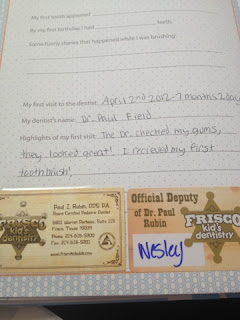 My first tooth appeared
By my first birthday I had teeth.
Some funny stories that happened while I was brushing:
My first visit to the dentist: April 2nd 2012-7 months 2 days
My dentist's name: Dr. Paul Field
Highlights of my first visit: The Dr. checked my gums,
they looked great! I recieved my first
toothbrush!
FRISCO
kid's
dentistry
Paul I. Rubin, DDS P.A.
Board Certified Pediatric Dentist
Frisco, Texas
Phone
Fax
Official Deputy
of Dr. Paul
Rubin
FRISCO
kid's
dentistry
Nesley